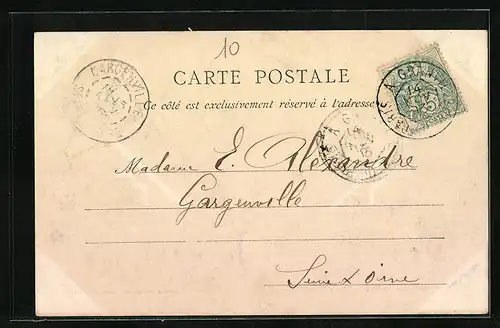 10
GARGENVILLE
CARTE POSTALE
Ce côté est exclusivement réservé à l'adresse
PARIS A GRANV
Madame E. Alexandre
Gargenville
Seine & Oise